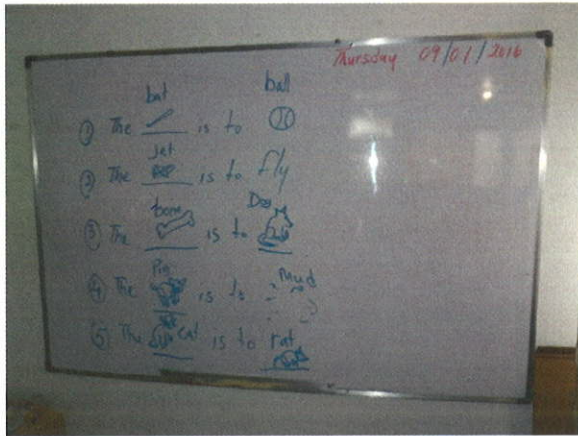 Thursday 09/01/2016
bat ball
① The ___ is to
Jet
② The ___ is to fly
bone Dog
③ The ___ is to ___
Pig Mud
④ The ___ is to
⑤ The ___ cat is to rat